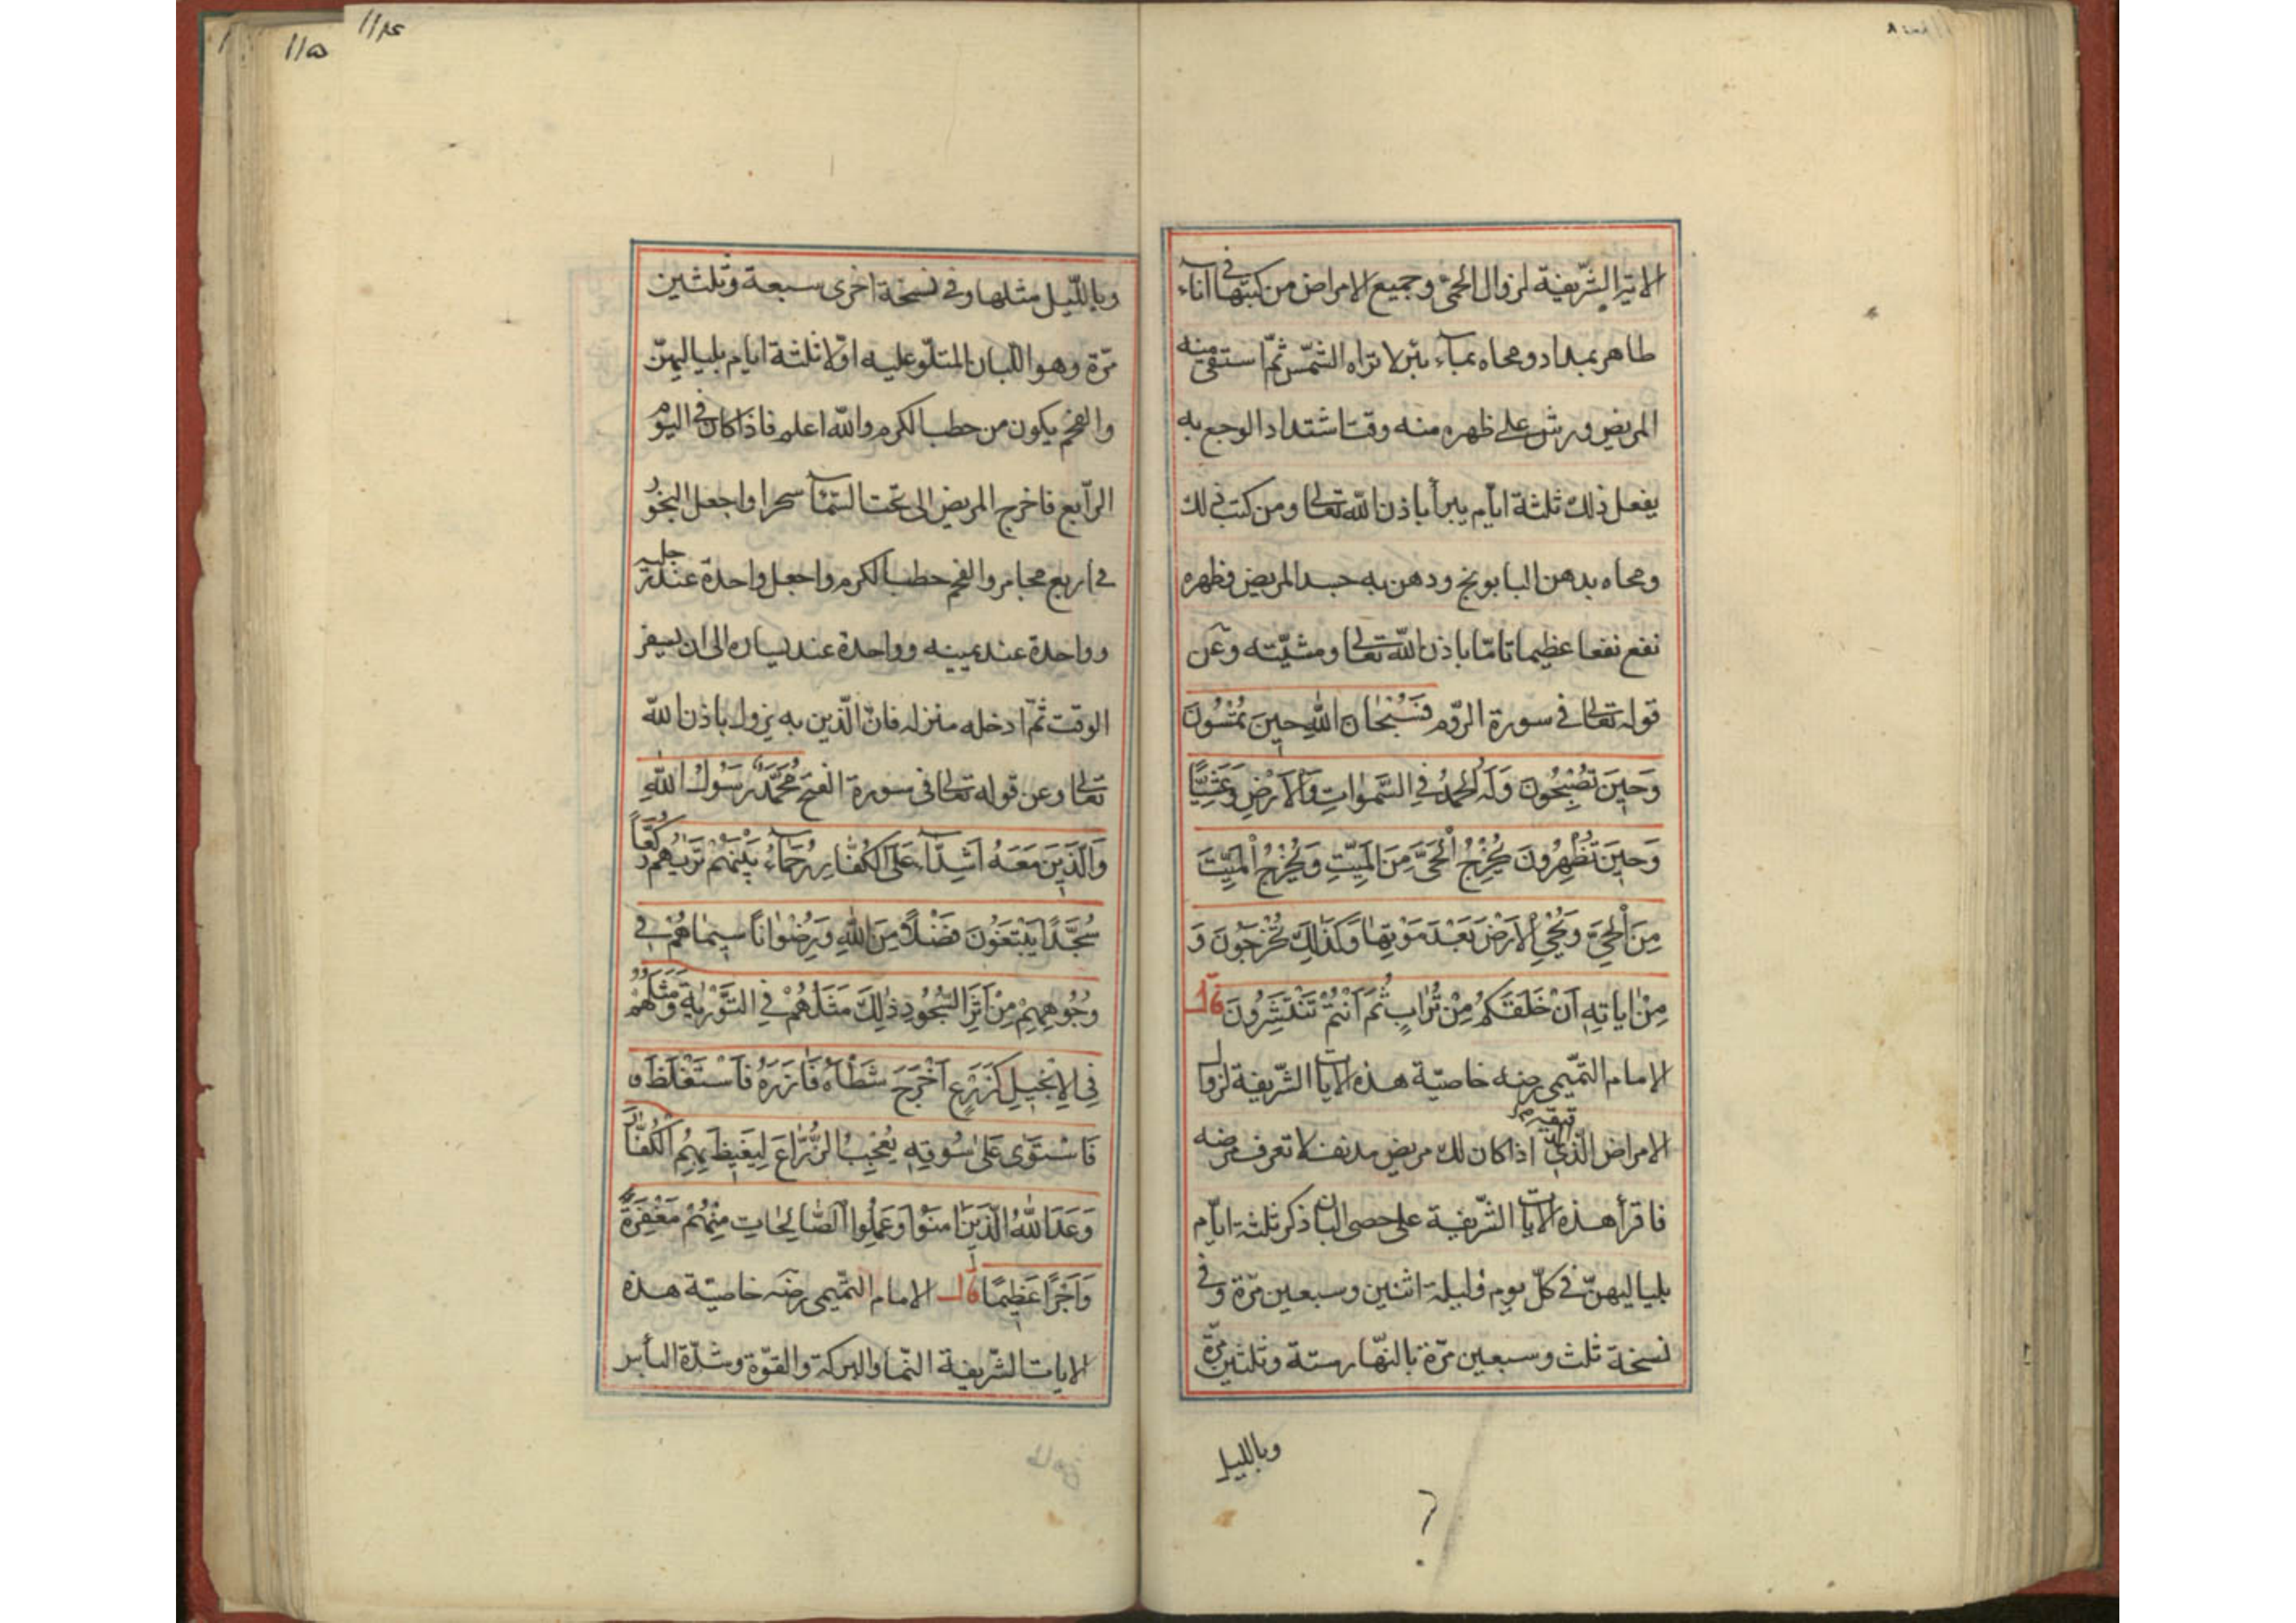 الاية الشريفة لزوال الحمى وجميع الامراض من كتبها فى اناء
طاهر بمداد ومحاه بمآء بئر لا تراه الشمس ثم استقى منه
المريض ورش على ظهره منه وقت اشتداد الوجع به
يفعل ذلك ثلثة ايام يبرأ باذن الله تعالى ومن كتب ذلك
ومحاه بدهن البابونج ودهن به جسد المريض وظهره
نفع نفعا عظيما تامّا باذن الله تعالى ومشيّته وعن
قوله تعالى فى سورة الروم فَسُبْحَانَ اللهِ حِينَ تُمْسُونَ
وَحِينَ تُصْبِحُونَ وَلَهُ الْحَمْدُ فِي السَّمٰوَاتِ وَالْاَرْضِ وَعَشِيًّا
وَحِينَ تُظْهِرُونَ يُخْرِجُ الْحَيَّ مِنَ الْمَيِّتِ وَيُخْرِجُ الْمَيِّتَ
مِنَ الْحَيِّ وَيُحْيِ الْاَرْضَ بَعْدَ مَوْتِهَا وَكَذٰلِكَ تُخْرَجُونَ وَ
مِنْ اٰيَاتِهِ اَنْ خَلَقَكُمْ مِنْ تُرَابٍ ثُمَّ اَنْتُمْ تَنْتَشِرُونَ قال
الامام التميمى رضه خاصيّة هذه الايات الشريفة لزوال
الامراض الذى اذا كان لك مريض مدنف لا تعرف مرضه
فاقرأ هذه الايات الشريفة على حصى البان ذكر ثلثة ايام
بلياليهنّ فى كلّ يوم وليلة اثنين وسبعين مرّة وفى
نسخة ثلث وسبعين مرّة بالنهار ستة وثلثين مرّة
وبالليل
وبالليل مثلها وفى نسخة اخرى سبعة وثلثين
مرّة وهو اللبان المتلوّ عليه اوّلا ثلثة ايام بلياليهنّ
والفحم يكون من حطب الكرم والله اعلم فاذا كان فى اليوم
الرابع فاخرج المريض الى تحت السّمآء سحرا واجعل البخور
فى اربع مجامر والفحم حطب الكرم واجعل واحدة عند
وواحدة عند يمينه وواحدة عند يساره الى ان يسفر
الوقت ثمّ ادخله منزله فانّ الّذين به يزول باذن الله
تعالى وعن قوله تعالى فى سورة الفتح مُحَمَّدٌ رَسُولُ اللهِ
وَالَّذِينَ مَعَهُ اَشِدَّآءُ عَلَى الْكُفَّارِ رُحَمَآءُ بَيْنَهُمْ تَرٰيهُمْ رُكَّعًا
سُجَّدًا يَبْتَغُونَ فَضْلًا مِنَ اللهِ وَرِضْوَانًا سِيمَاهُمْ فِي
وُجُوهِهِمْ مِنْ اَثَرِ السُّجُودِ ذٰلِكَ مَثَلُهُمْ فِي التَّوْرٰيةِ وَمَثَلُهُمْ
فِي الْاِنْجِيلِ كَزَرْعٍ اَخْرَجَ شَطْأَهُ فَاٰزَرَهُ فَاسْتَغْلَظَ
فَاسْتَوٰى عَلٰى سُوقِهِ يُعْجِبُ الزُّرَّاعَ لِيَغِيظَ بِهِمُ الْكُفَّارَ
وَعَدَ اللهُ الَّذِينَ اٰمَنُوا وَعَمِلُوا الصَّالِحَاتِ مِنْهُمْ مَغْفِرَةً
وَاَجْرًا عَظِيمًا قال الامام التميمى رضه خاصيّة هذه
الايات الشريفة النما والبركة والقوّة وشدّة البأس